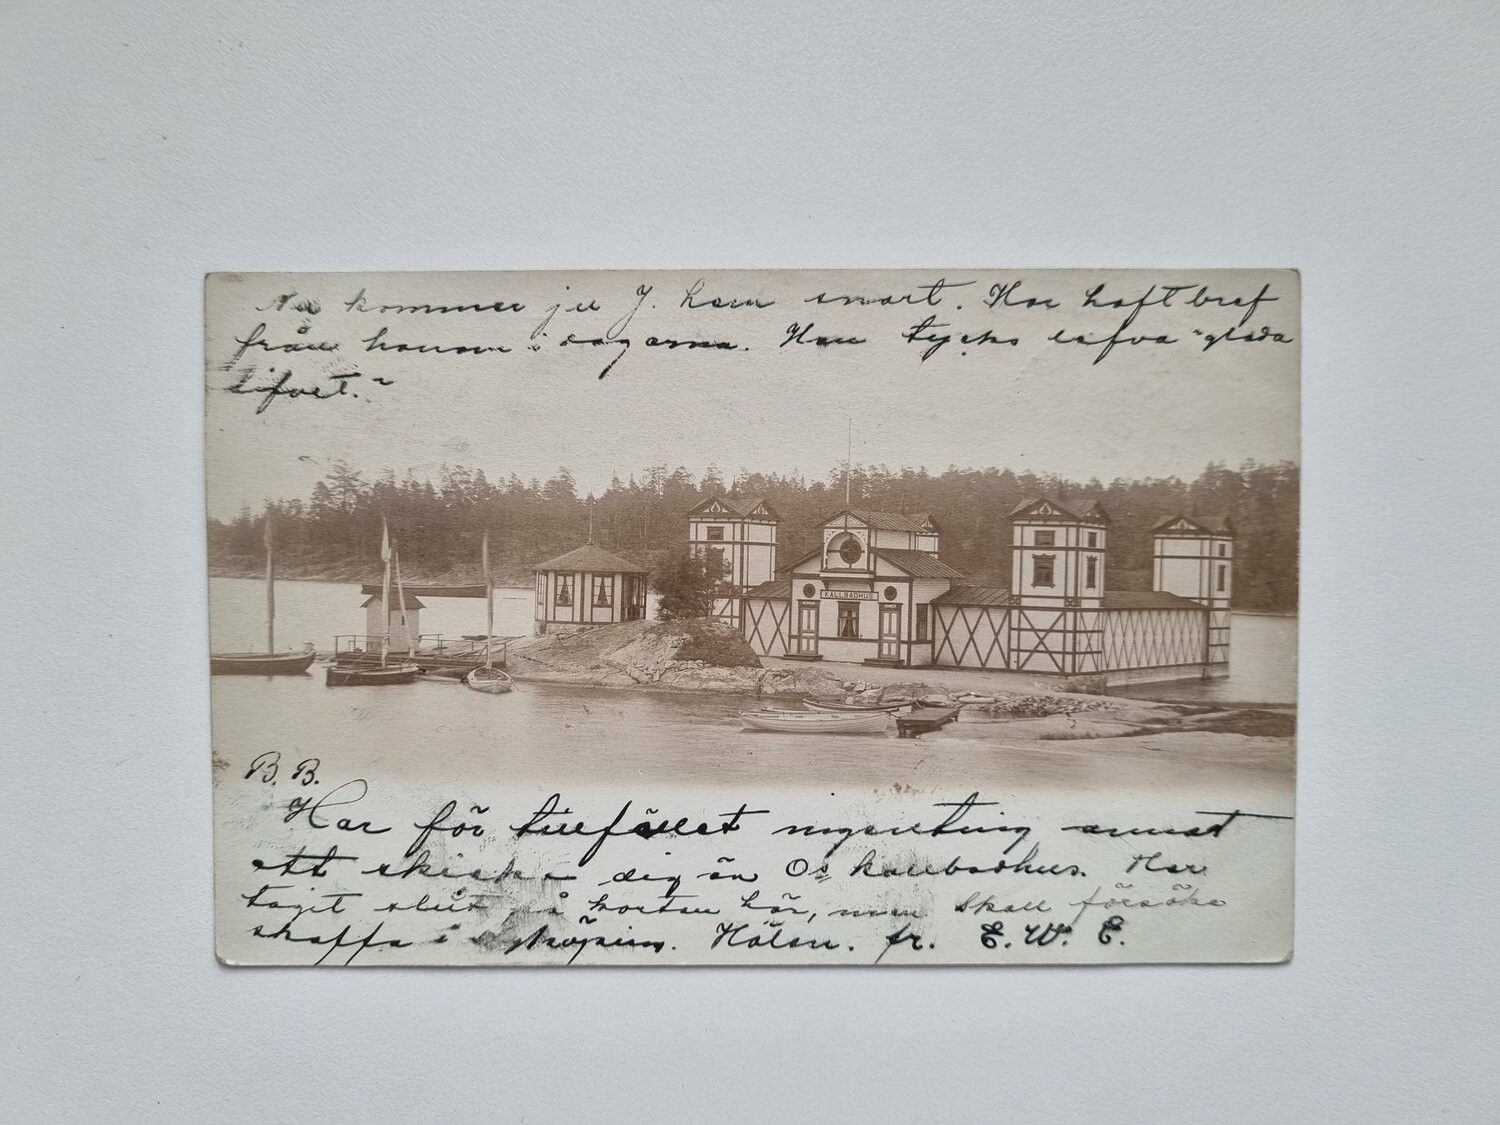 Nu kommer ju J. hem snart. Har haft bref
från honom i dagarna. Han tycks lefva "glada
lifvet."
KALLBADHUS
HERRAR
DAMER
B. B.
Har för tillfället ingenting annat
att skicka dig än Os kallbadhus. Har
tagit slut på korten här, men skall försöka
skaffa i Nyköping. Hälsn. fr. E. W. E.